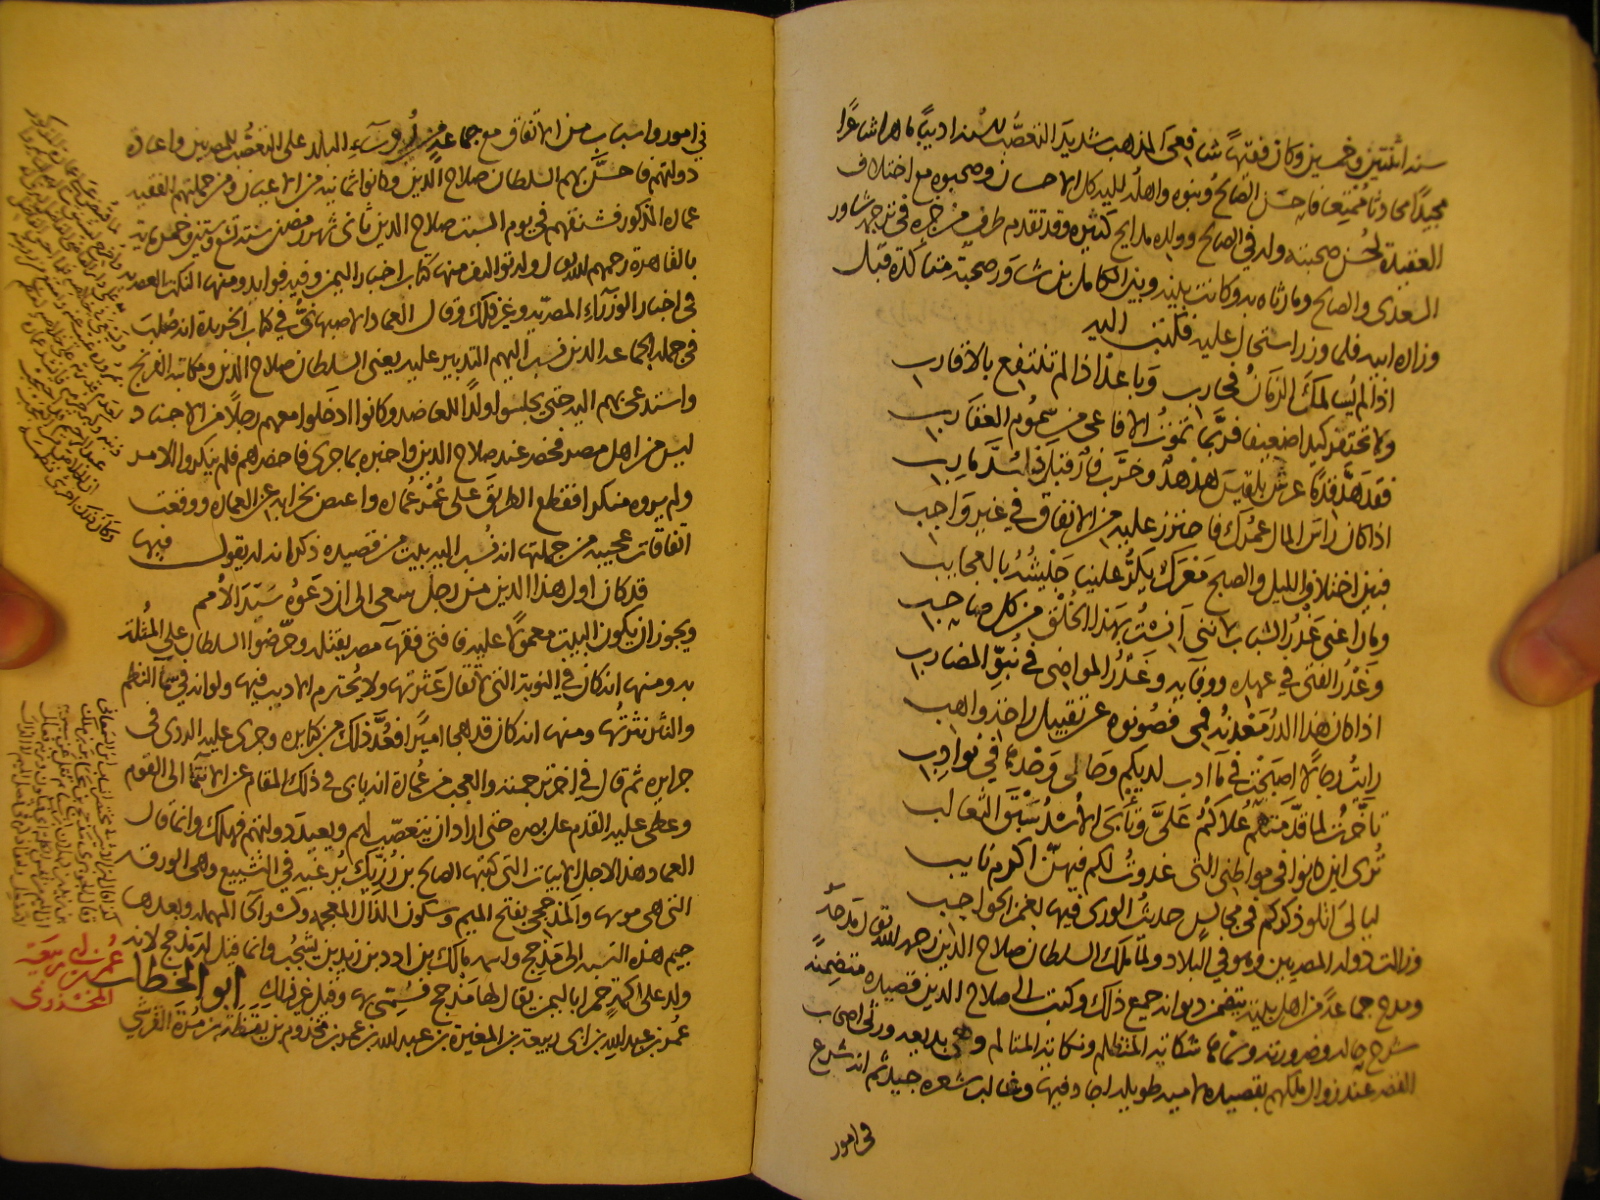 سنة اثنتين وخمسين وكان فقيها شافعي المذهب شديد التعصب للسنة اديبا ماهرا شاعرا
مجيدا محادثا ممتعا فاحسن الصالح وبنوه واهله اليه كل الاحسان وصحبوه مع اختلاف
العقيدة لحسن صحبته وله في الصالح وولده مدايح كثيرة وقد تقدم طرف من خبره في ترجمة شاور
السعدي والصالح وما رثاه به وكانت بينه وبين الكامل بن شاور صحبة متاكدة قبل
وزارة ابيه فلما وزر استحال عليه فكتب اليه
اذا لم يسالمك الزمان فحارب وباعد اذا لم تنتفع بالاقارب
ولا تحتقر كيدا ضعيفا فربما تموت الافاعي من سموم العقارب
فقد هد قدما عرش بلقيس هدهد وخرب فأر قبل ذا سد مارب
اذا كان راس المال عمرك فاحترز عليه من الانفاق في غير واجب
فبين اختلاف الليل والصبح معرك يكر علينا جيشه بالعجايب
وما راعني غدر الشباب لانني انست بهذا الخلق من كل صاحب
وغدر الفتى في عهده ووفايه وغدر المواضي في نبو المضارب
اذا كان هذا الدر معدنه فمي فصونوه عن تقبيل راحة واهب
رايت رجالا اصبحت في مآدب لديكم وحالي وحدها في نوادب
تأخرت لما قدمتهم علاكم علي وتأبى الاسد سبق الثعالب
ترى اين كانوا في مواطني التي غدوت لكم فيهن اكرم نايب
ليالي اتلو ذكركم في مجالس حديث الورى فيها بغمز الحواجب
وزالت دولة المصريين وهو في البلاد ولما ملك السلطان صلاح الدين رحمه الله تعالى مدحه
ومدح جماعة من اهل بيته يتضمن ديوانه جميع ذلك وكتب الى صلاح الدين قصيدة متضمنة
شرح حاله وضرورته وسماها شكاية المتظلم ونكاية المتالم وهي بديعة ورثى اصحاب
القصر عند زوال ملكهم بقصيدة لامية طويلة اجاد فيها وغالب شعره جيد ثم انه شرع
في امور
في امور واسباب من الاتفاق مع جماعة من رؤساء البلد على التعصب للمصريين واعادة
دولتهم فاحس بهم السلطان صلاح الدين وكانوا ثمانية من الاعيان ومن جملتهم الفقيه
عمارة المذكور فشنقهم في يوم السبت صلاح الدين ثاني شهر رمضان سنة تسع وستين وخمس ماية
بالقاهرة رحمهم الله تعالى وله تواليف منها كتاب اخبار اليمن وفيه فوايد ومنها النكت العصرية
في اخبار الوزراء المصرية وغير ذلك وقال العماد الاصبهاني في كتاب الخريدة انه صلب
في جملة الجماعة الذين نسب اليهم التدبير عليه يعني السلطان صلاح الدين ومكاتبة الفرنج
واستدعى بهم اليه حتى يجلسوا ولدا للعاضد وكانوا ادخلوا معهم رجلا من الاجناد
ليس من اهل مصر فحضر عند صلاح الدين واخبره بما جرى فاحضرهم فلم ينكروا الامر
ولم يروه منكرا فقطع الطريق على عمر عمارة واعتيض بخرابه عن العمارة ووقعت
اتفاقات عجيبة من جملتها انه نسب اليه بيت من قصيدة ذكر انه له يقول فيها
قد كان اول هذا الدين من رجل سعى الى ان دعوه سيد الامم
ويجوز ان يكون البيت معمولا عليه فافتى فقهاء مصر بقتله وحرضوا السلطان على المثلة
به ومنها انه كان في النوبة التي لا تقال عثرتها ولا يحترم الاديب فيها ولو انه في سماء النظم
والنثر نثرتها ومنها انه كان قد هجا اميرا فعد ذلك من كبايره وجرى عليه الردى في
جرايره ثم قال في اخر ترجمته والعجب من عمارة انه يأبى في ذلك المقام عن الانتما الى القوم
وغطى عليه القدر على بصره حتى اراد ان يتعصب لهم ويعيد دولتهم فهلك وانما قال
العماد هذا لاجل الابيات التي كتبها الصالح بن رزيك يرغبه في التشيع وهي الورقة
التي هي موبها والمذحجي بفتح الميم وسكون الذال المعجمة وكسر الحا المهملة وبعدها
جيم هذه النسبة الى مذحج واسمه مالك بن ادد بن زيد بن يشجب وانما قيل له مذحج لانه
ولد على اكمة حمرا باليمن يقال لها مذحج فسمي بها وقيل غير ذلك ابو الخطاب
عمر بن عبد الله بن ابي ربيعة بن المغيرة بن عبد الله بن عمر بن مخزوم بن يقظة بن مرة القرشي
عمر بن ابي ربيعة
المخزومي